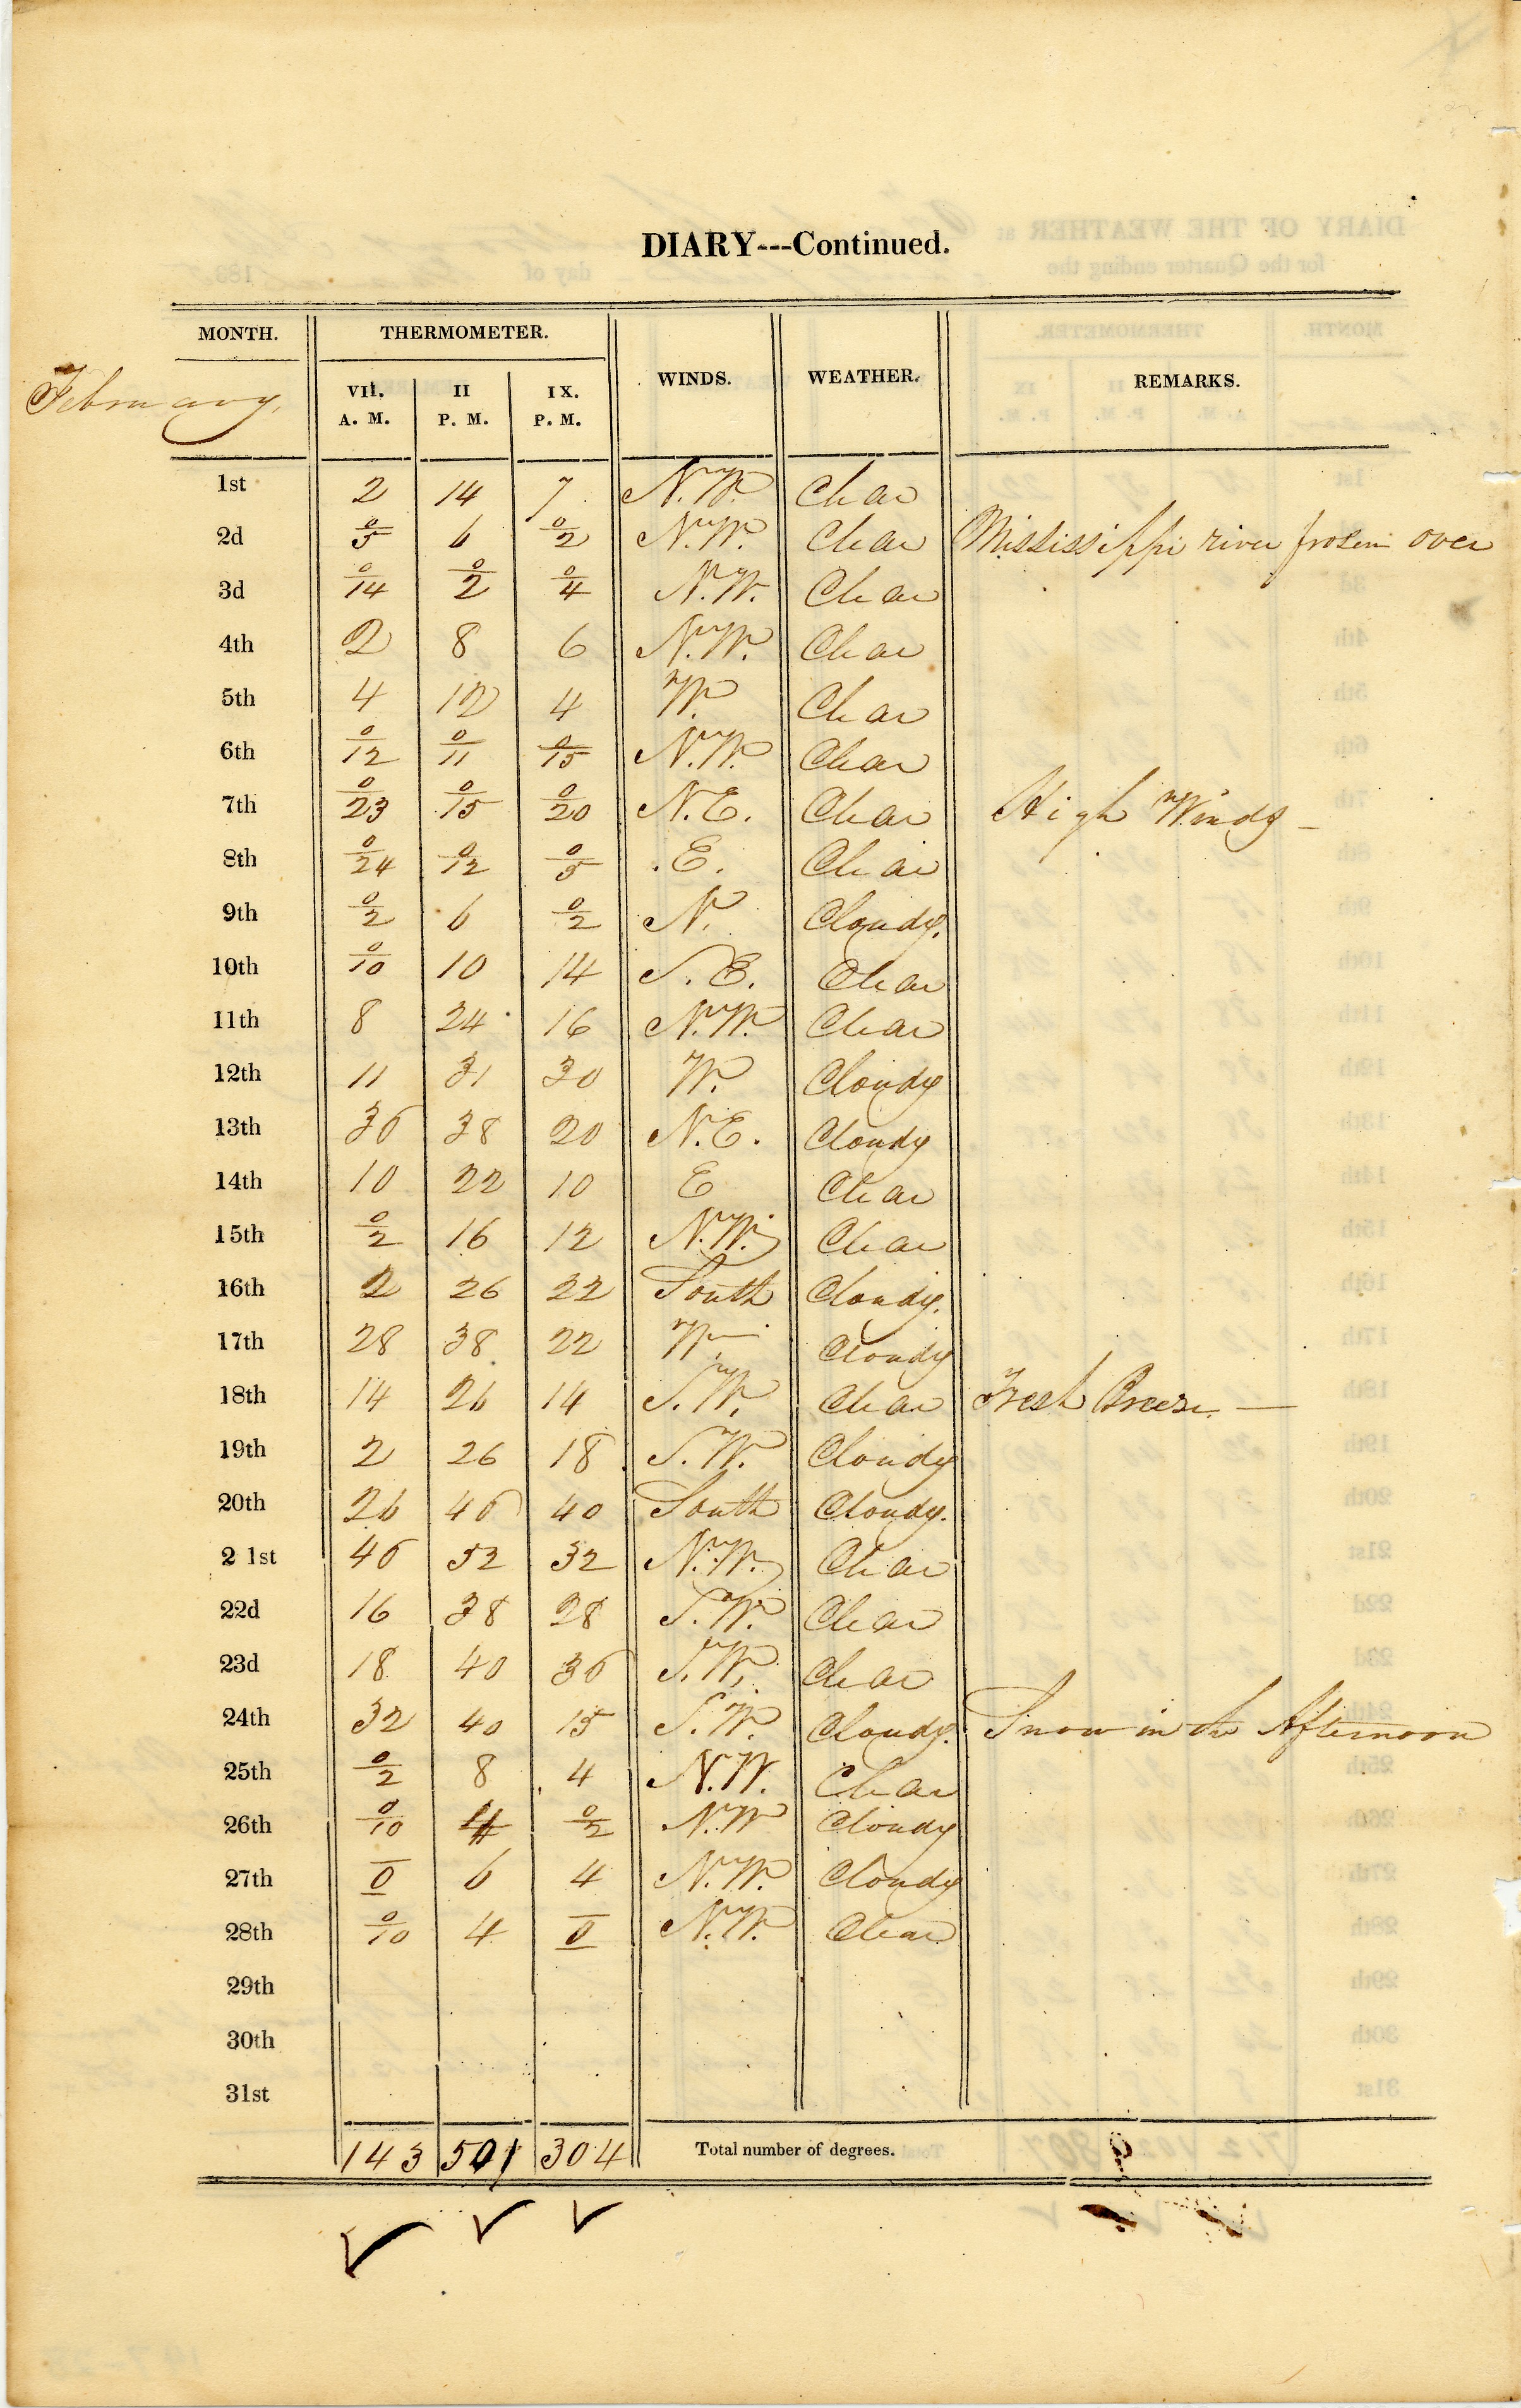 DIARY---Continued.
MONTH. THERMOMETER. WINDS. WEATHER. REMARKS.
February,
VII. A. M. II P. M. IX. P. M.
1st 2 14 7 N.W. Clear
2d 0/5 6 0/2 N.W. Clear Mississippi river frosen over
3d 0/14 0/2 0/4 N.W. Clear
4th 2 8 6 N.W. Clear
5th 4 12 4 W. Clear
6th 0/12 0/11 0/15 N.W. Clear
7th 0/23 0/15 0/20 N.E. Clear High Winds –
8th 0/24 0/12 0/5 E. Clear
9th 0/2 6 0/2 N. Cloudy.
10th 0/10 10 14 S.E. Clear
11th 8 24 16 N.W. Clear
12th 11 31 30 W. Cloudy
13th 36 38 20 N.E. Cloudy
14th 10 22 10 E Clear
15th 0/2 16 12 N.W. Clear
16th 2 26 22 South Cloudy.
17th 28 38 22 W. Cloudy
18th 14 26 14 S.W. Clear Fresh Breeze. —
19th 2 26 18 S.W. Cloudy
20th 26 46 40 South Cloudy.
21st 46 52 32 N.W. Clear
22d 16 38 28 S.W. Clear
23d 18 40 36 S.W. Clear
24th 32 40 15 S.W. Cloudy. Snow in the Afternoon
25th 0/2 8 4 N.W. Clear
26th 0/10 4 0/2 N.W Cloudy
27th 0 6 4 N.W. Cloudy
28th 0/10 4 0 N.W. Clear
29th
30th
31st
143 501 304 Total number of degrees.